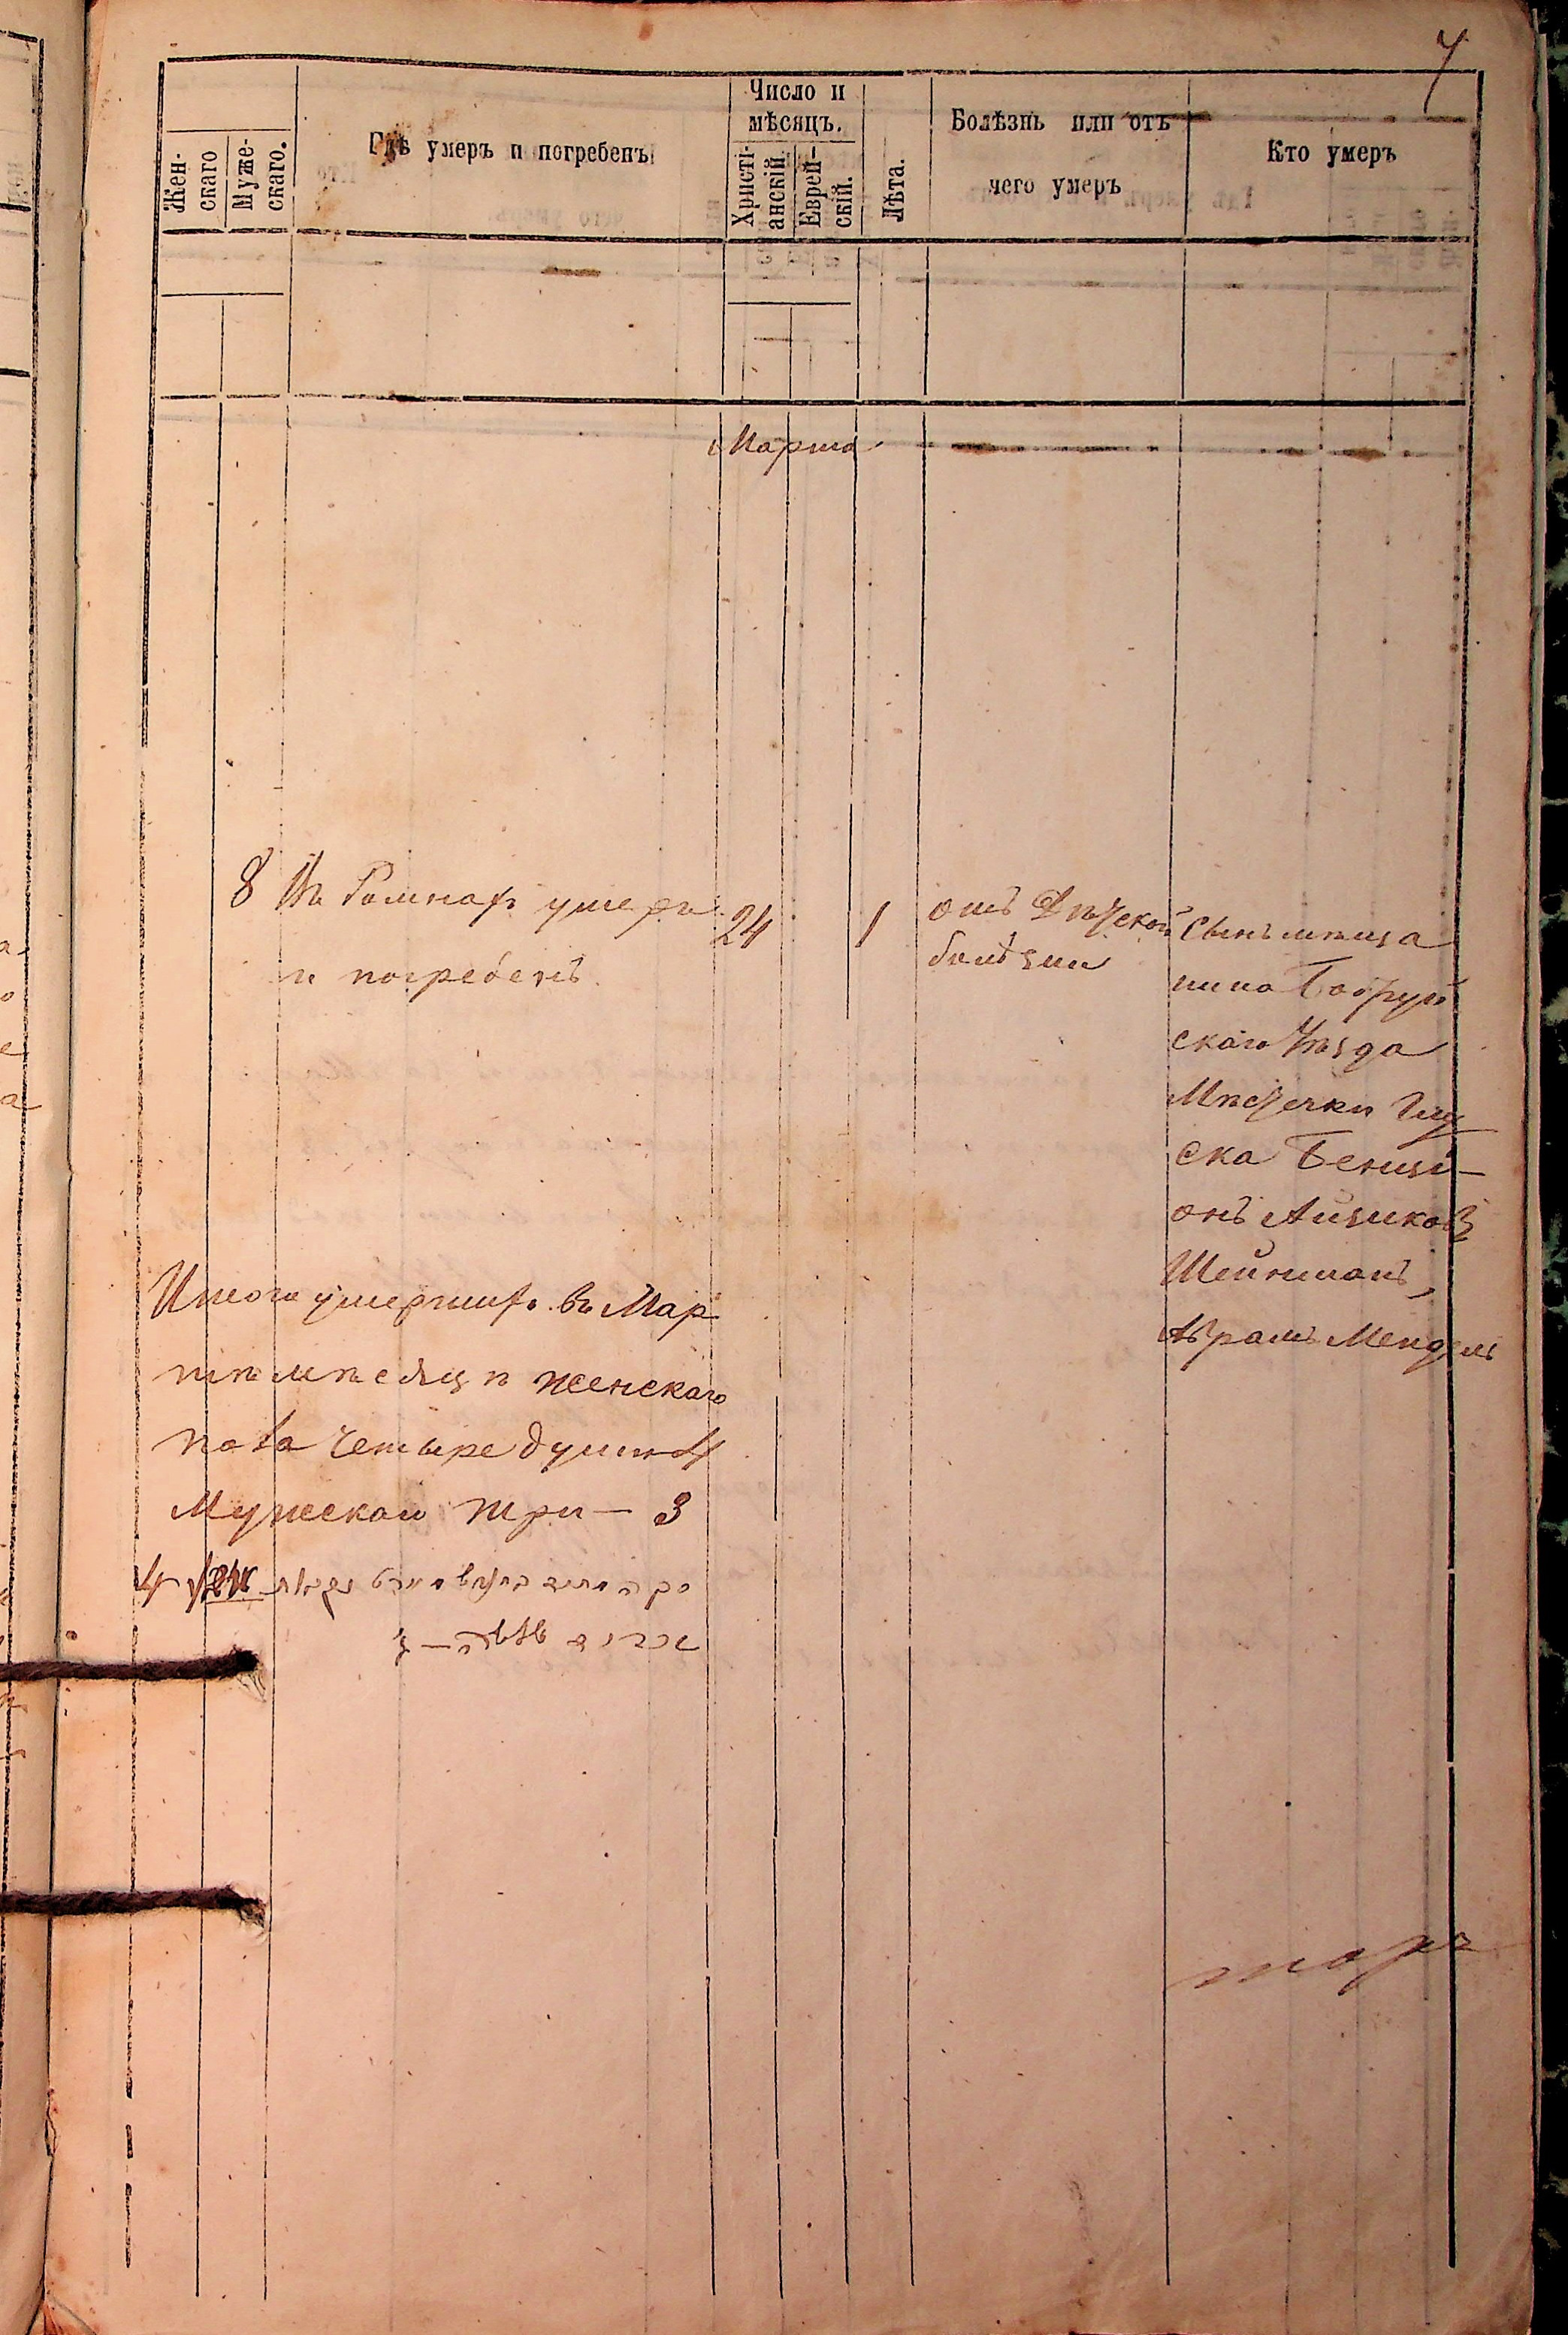 7
Жен-
скаго
Муже-
скаго.
Гдѣ умеръ и погребенъ
Число и
мѣсяцъ.
Христі-
анскій.
Еврей-
скій.
Лѣта.
Болѣзнь или отъ
чего умеръ
Кто умеръ
Марта
8 Въ Ромнахъ умеръ
и погребенъ.
24
1
отъ Дѣтской
болѣзни
Сынъ мѣща
нина Бобруй
скаго Уѣзда
Мѣстечки Глу
ска Бенци-
онъ Айзиковъ
Шейнманъ,
Абрамъ Мендель
Итого умершихъ въ Мар
тѣ мѣсяцѣ женскаго
пола Четыре души 4
Мужскаго три — 3